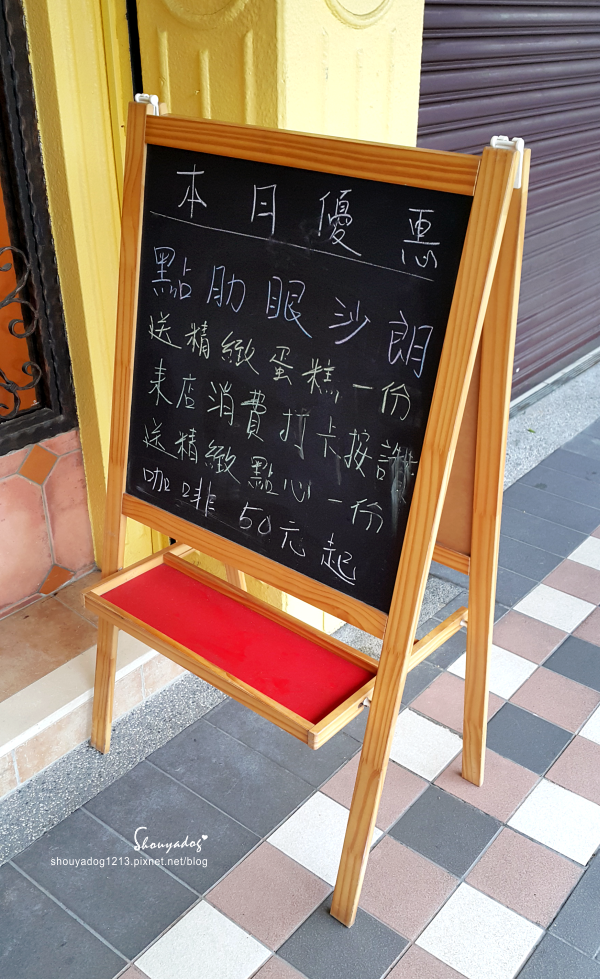 本日優惠
點肋眼沙朗
送精緻蛋糕一份
來店消費打卡按讚
送精緻點心一份
咖啡50元起
Shouyadog
shouyadog1213.pixnet.net/blog